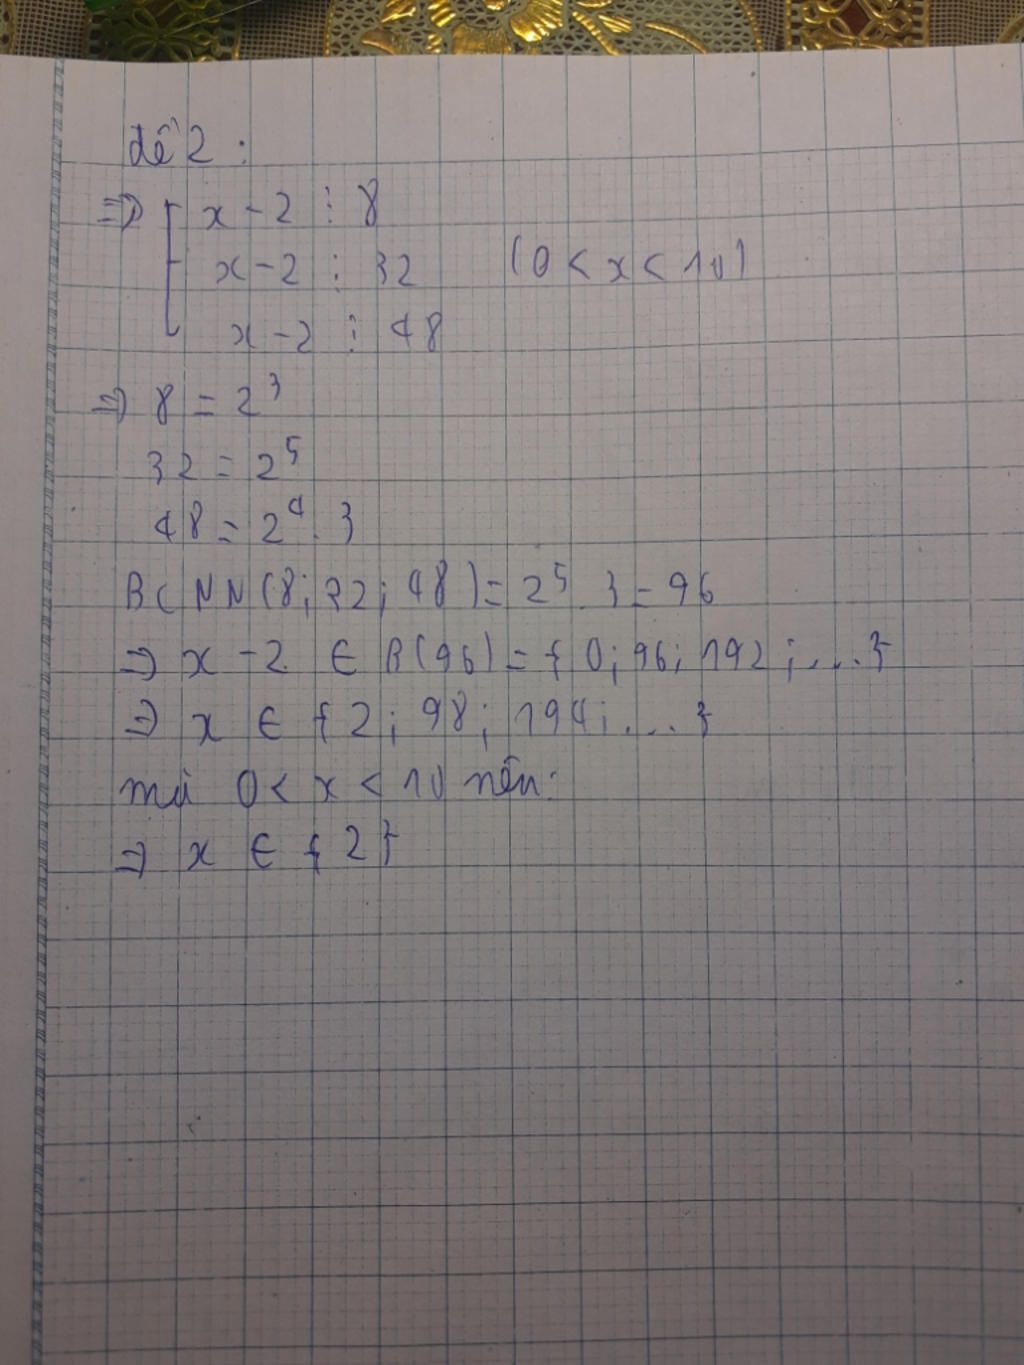 đề 2 :
=> [ x - 2 ⋮ 8
x - 2 ⋮ 32 (0 < x < 10)
x - 2 ⋮ 48
=> 8 = 2³
32 = 2⁵
48 = 2⁴ . 3
BCNN(8; 32; 48) = 2⁵ . 3 = 96
=> x - 2 ∈ B(96) = { 0; 96; 192; ... }
=> x ∈ { 2; 98; 194; ... }
mà 0 < x < 10 nên:
=> x ∈ { 2 }